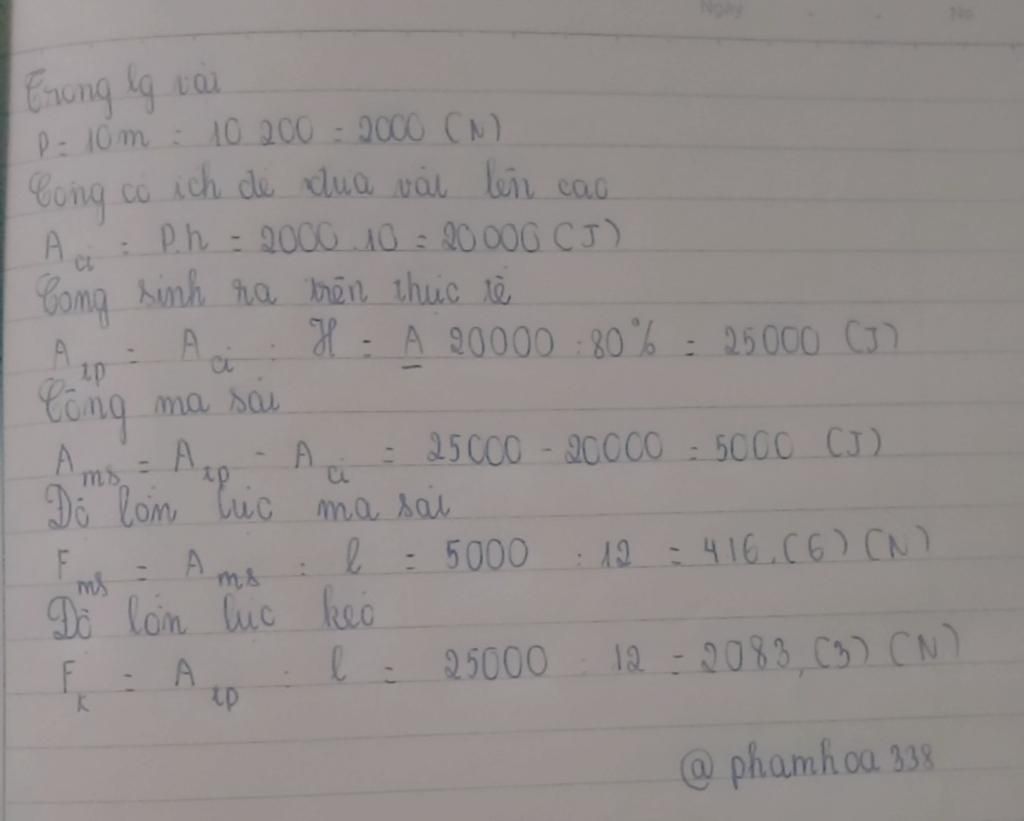 Ngày No
Trong lg vải
P = 10m = 10 200 = 2000 (N)
Công có ích để đưa vải lên cao
A ci = P.h = 2000 . 10 = 20000 (J)
Công sinh ra trên thực tế
A tp = A ci : H = A 20000 : 80% = 25000 (J)
Công ma sái
A ms = A tp - A ci = 25000 - 20000 = 5000 (J)
Độ lớn lực ma sái
F ms = A ms : l = 5000 : 12 = 416,(6) (N)
Độ lớn lực kéo
F k = A tp : l = 25000 : 12 = 2083,(3) (N)
@phamhoa338